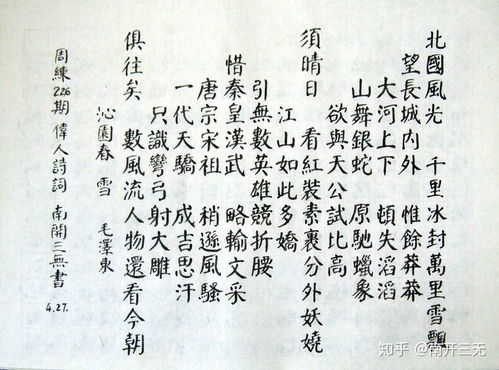 北國風光 千里冰封萬里雪飄
望長城内外 惟餘莽莽
大河上下 頓失滔滔
山舞銀蛇 原馳蠟象
欲與天公試比高
須晴日 看紅裝素裹分外妖嬈
江山如此多嬌
引無數英雄競折腰
惜秦皇漢武 略輸文采
唐宗宋祖 稍遜風騷
一代天驕 成吉思汗
只識彎弓射大雕
俱往矣 數風流人物還看今朝
沁園春 雪 毛澤東
周練226期 偉人詩詞 南開三無書
4.27.
知乎 @南开三无